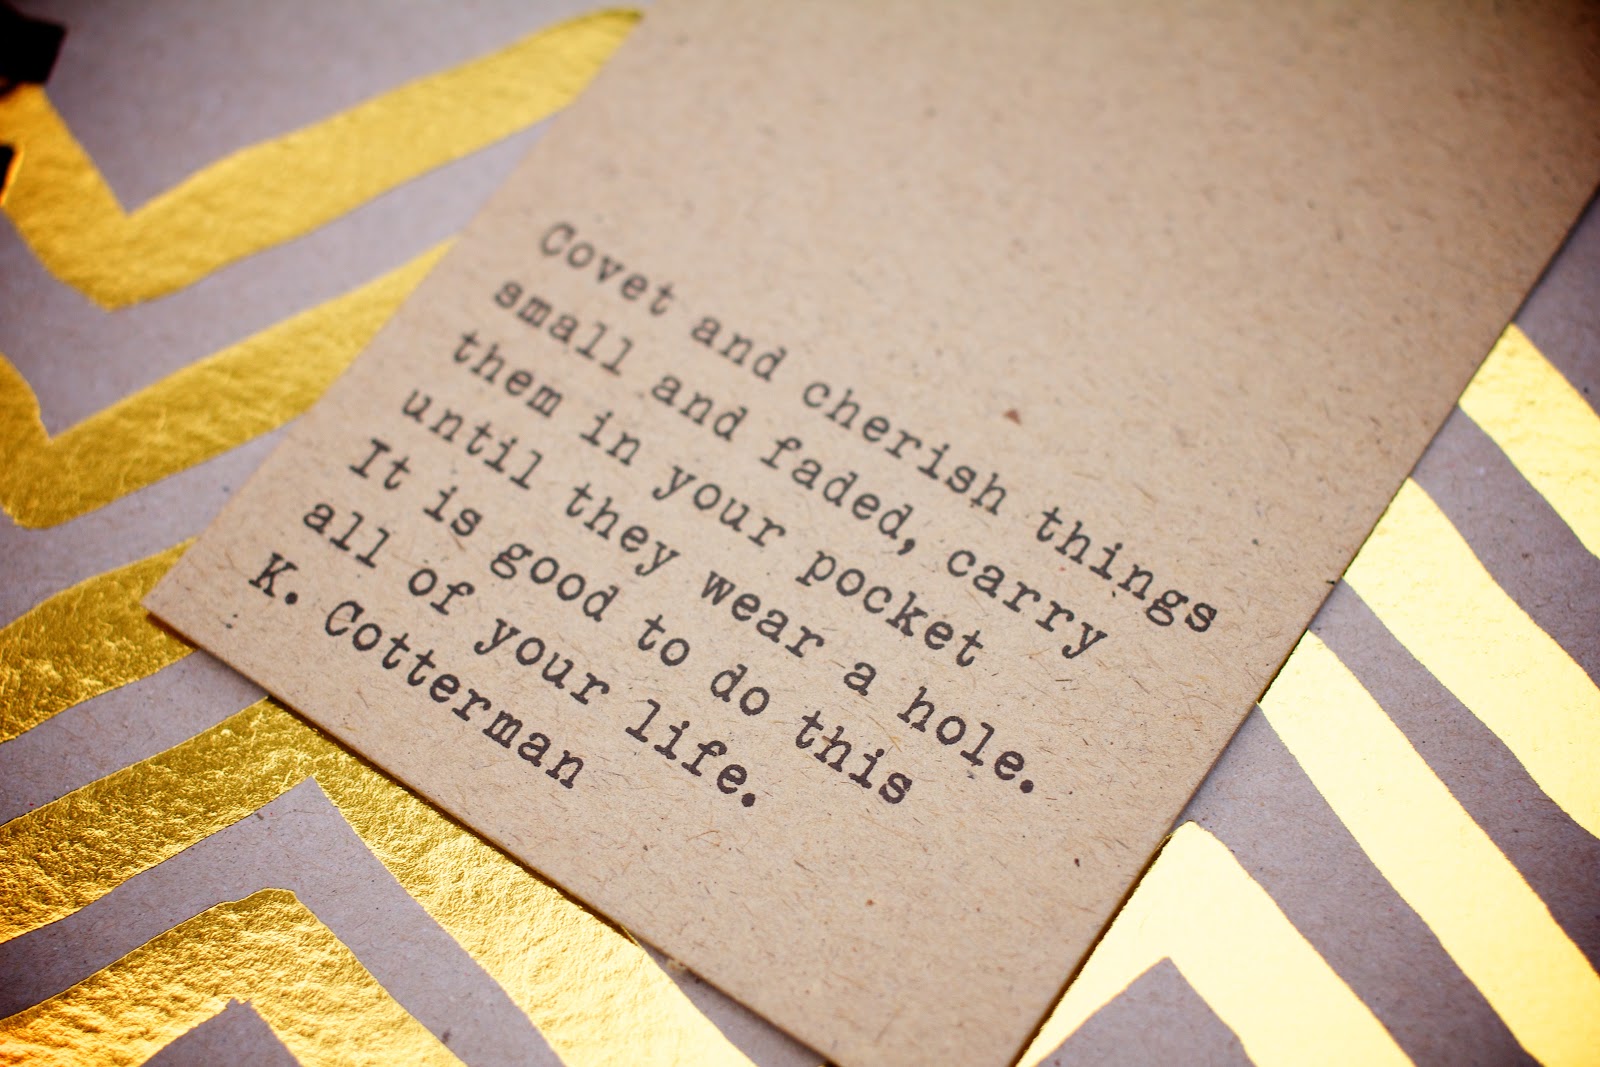 Covet and cherish things
small and faded, carry
them in your pocket
until they wear a hole.
It is good to do this
all of your life.
K. Cotterman